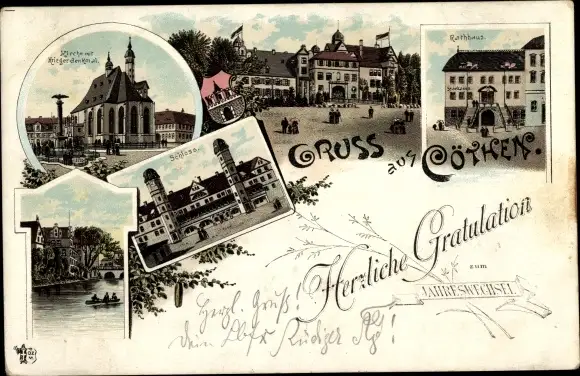 Kirche mit
Kriegerdenkmal.
Rathhaus.
Schloss.
GRUSS aus CÖTHEN.
Herzliche Gratulation
zum
JAHRESWECHSEL
Herzl. Gruß!
Dein Rüdiger